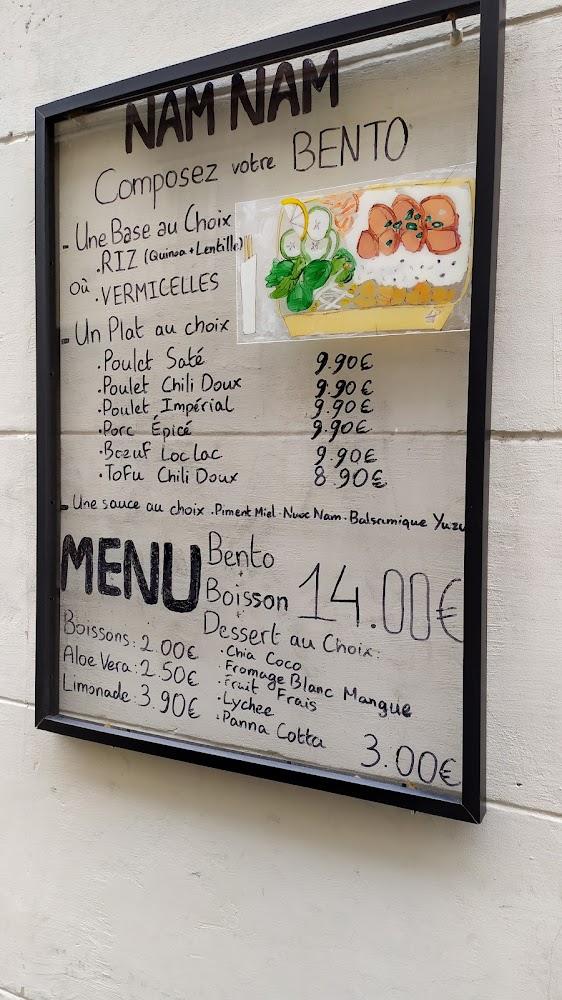 NAM NAM
Composez votre BENTO
- Une Base au Choix
.RIZ (Quinoa + Lentille)
où .VERMICELLES
- Un Plat au choix
.Poulet Saté 9.90€
.Poulet Chili Doux 9.90€
.Poulet Impérial 9.90€
.Porc Épicé 9.90€
.Bœuf Loc Lac 9.90€
.Tofu Chili Doux 8.90€
- Une sauce au choix .Piment Miel - Nuoc Nam - Balsamique Yuzu
MENU
Bento
+
Boisson
+
14.00€
Dessert au Choix:
Boissons: 2.00€
Aloe Vera: 2.50€
Limonade: 3.90€
.Chia Coco
.Fromage Blanc Mangue
.Fruit Frais
.Lychee
.Panna Cotta
3.00€